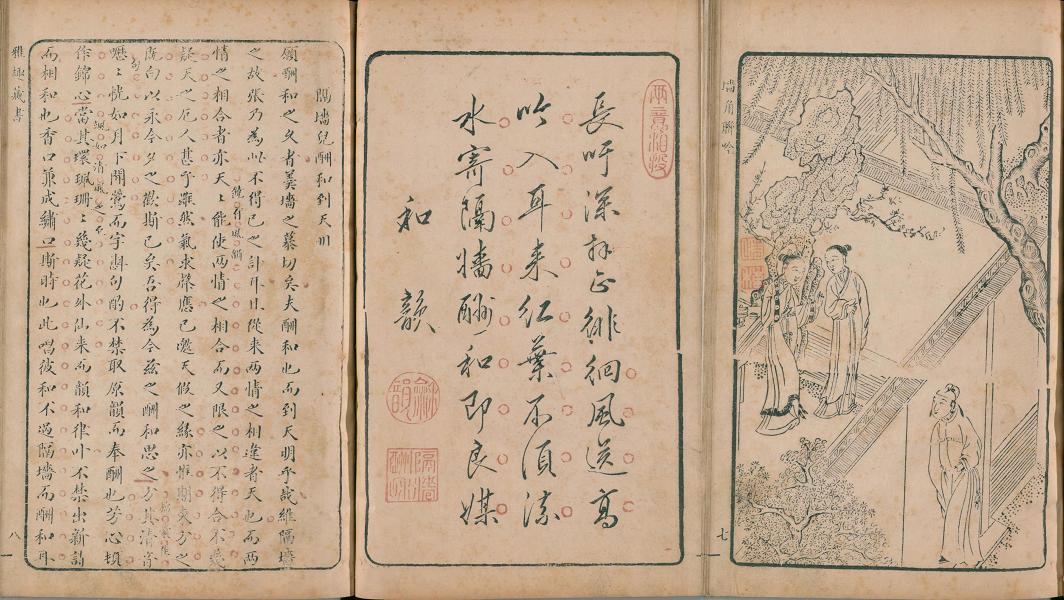 墙角聯吟
七
兩意相投
長吁深拜正徘徊風送高
吟入耳来紅葉不須流
水寄隔墻酬和即良媒
和韻
隔墻兒酬和到天明
願酬和之久者羡墻之慕切矣夫酬和也而到天明乎哉維隔墻
之故張乃為此不得已之計耳且從来两情之相違者天也而两
情之相合者亦天〻能使两情之相合而又限之以不得合不幾
疑天之厄人甚乎雖然氣求聲應已邀天假之緣亦惟期永夕之
以永今夕之歡斯已矣吾得為今兹之酬和思之方其清音
嚦〻恍如月下聞鶯而字斟句酌不禁取原韻而奉酬也芳心頓
作錦心當其環珮珊〻幾疑花外仙来而韻和律叶不禁出新詩
而相和也香口兼成繡口斯時也此唱彼和不過隔墻而酬和耳
雅趣藏書
八